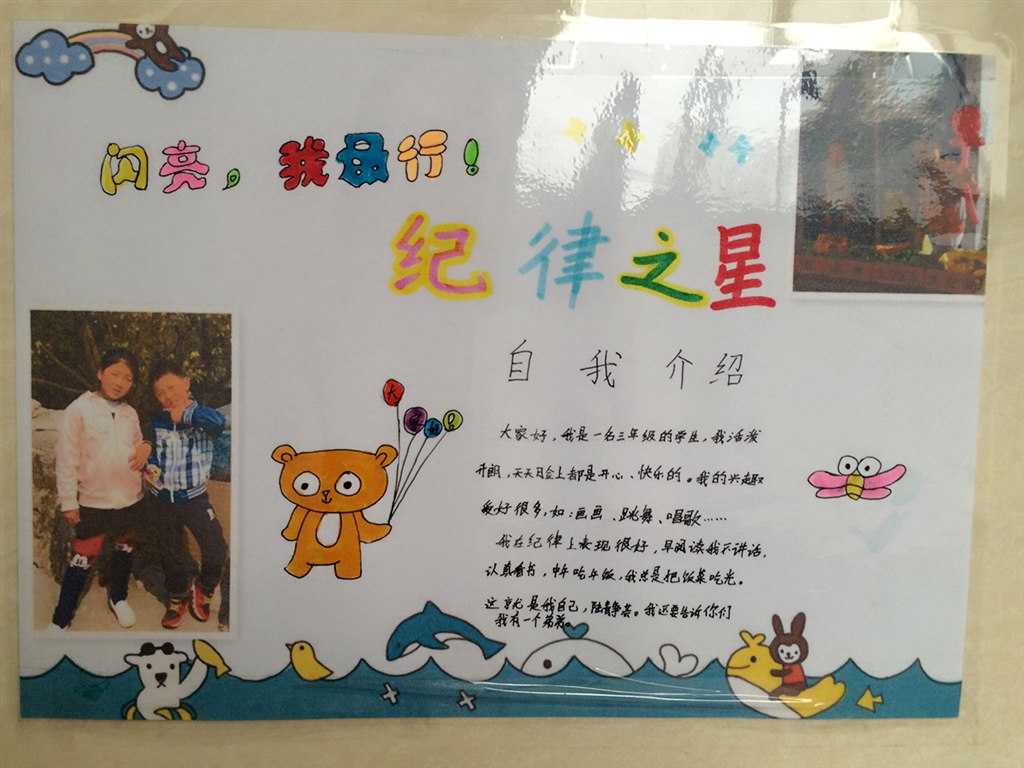 闪亮，我最行！
纪律之星
自我介绍
大家好，我是一名三年级的学生，我活泼
开朗，天天脸上都是开心、快乐的。我的兴趣
爱好很多，如：画画、跳舞、唱歌……
我在纪律上表现很好，早阅读我不讲话，
认真看书，中午吃午饭，我总是把饭菜吃光。
这就是我自己，陆静芸。我还要告诉你们
我有一个弟弟。